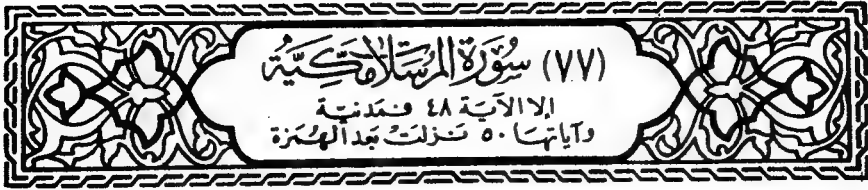 (٧٧) سُورَةُ المُرسَلَات مَكِّيَّة
إلا الآيَة ٤٨ فمَدنيَة
وآيَاتهَا ٥٠ نَزلَتْ بَعدَ الهُمَزة